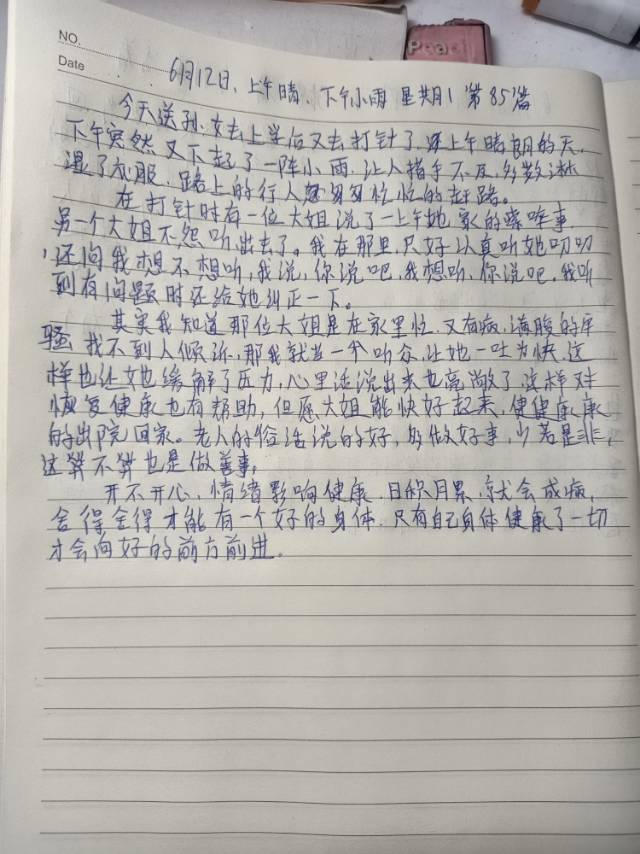 NO.
Date
6月12日、上午晴、下午小雨 星期1 第85篇
今天送孙女去上学后又去打针了,上午晴朗的天,
下午突然又下起了一阵小雨,让人措手不及,多数淋
湿了衣服,路上的行人匆匆忙忙的赶路。
在打针时有一位大姐说了一上午她家的琐碎事
另一个大姐不愿听,出去了。我在那里只好认真听她叨叨
,还问我想不想听,我说,你说吧,我想听,你说吧,我听
到有问题时还给她纠正一下。
其实我知道那位大姐是在家里忙、又有病,满腹的牢
骚找不到人倾诉,那我就当一个听众,让她一吐为快,这
样也让她缓解了压力,心里话说出来也亮敞了,这样对
恢复健康也有帮助,但愿大姐能快好起来,健健康康
的出院回家。老人的俗话说的好,多做好事,少惹是非,
这算不算也是做善事,
开不开心,情绪影响健康,日积月累,就会成病,
舍得舍得才能有一个好的身体,只有自己身体健康了一切
才会向好的前方前进.